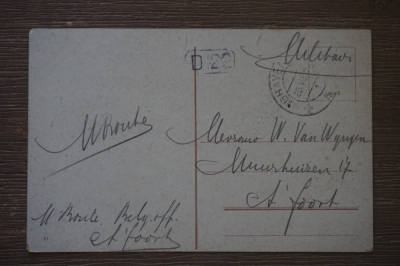 Militair
D 22
M Boute
Mevrouw W. Van Wyngen
Muurhuizen 17
A'foort
M Boute Belg. off.
" A'foort